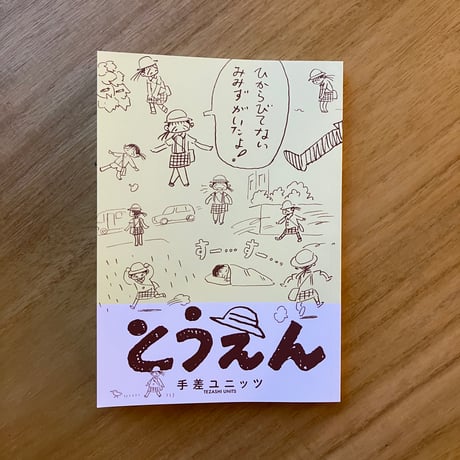 ひからびてない
みみずがいたよ!
すー…すー…
とうえん
手差ユニッツ
TEZASHI UNITS